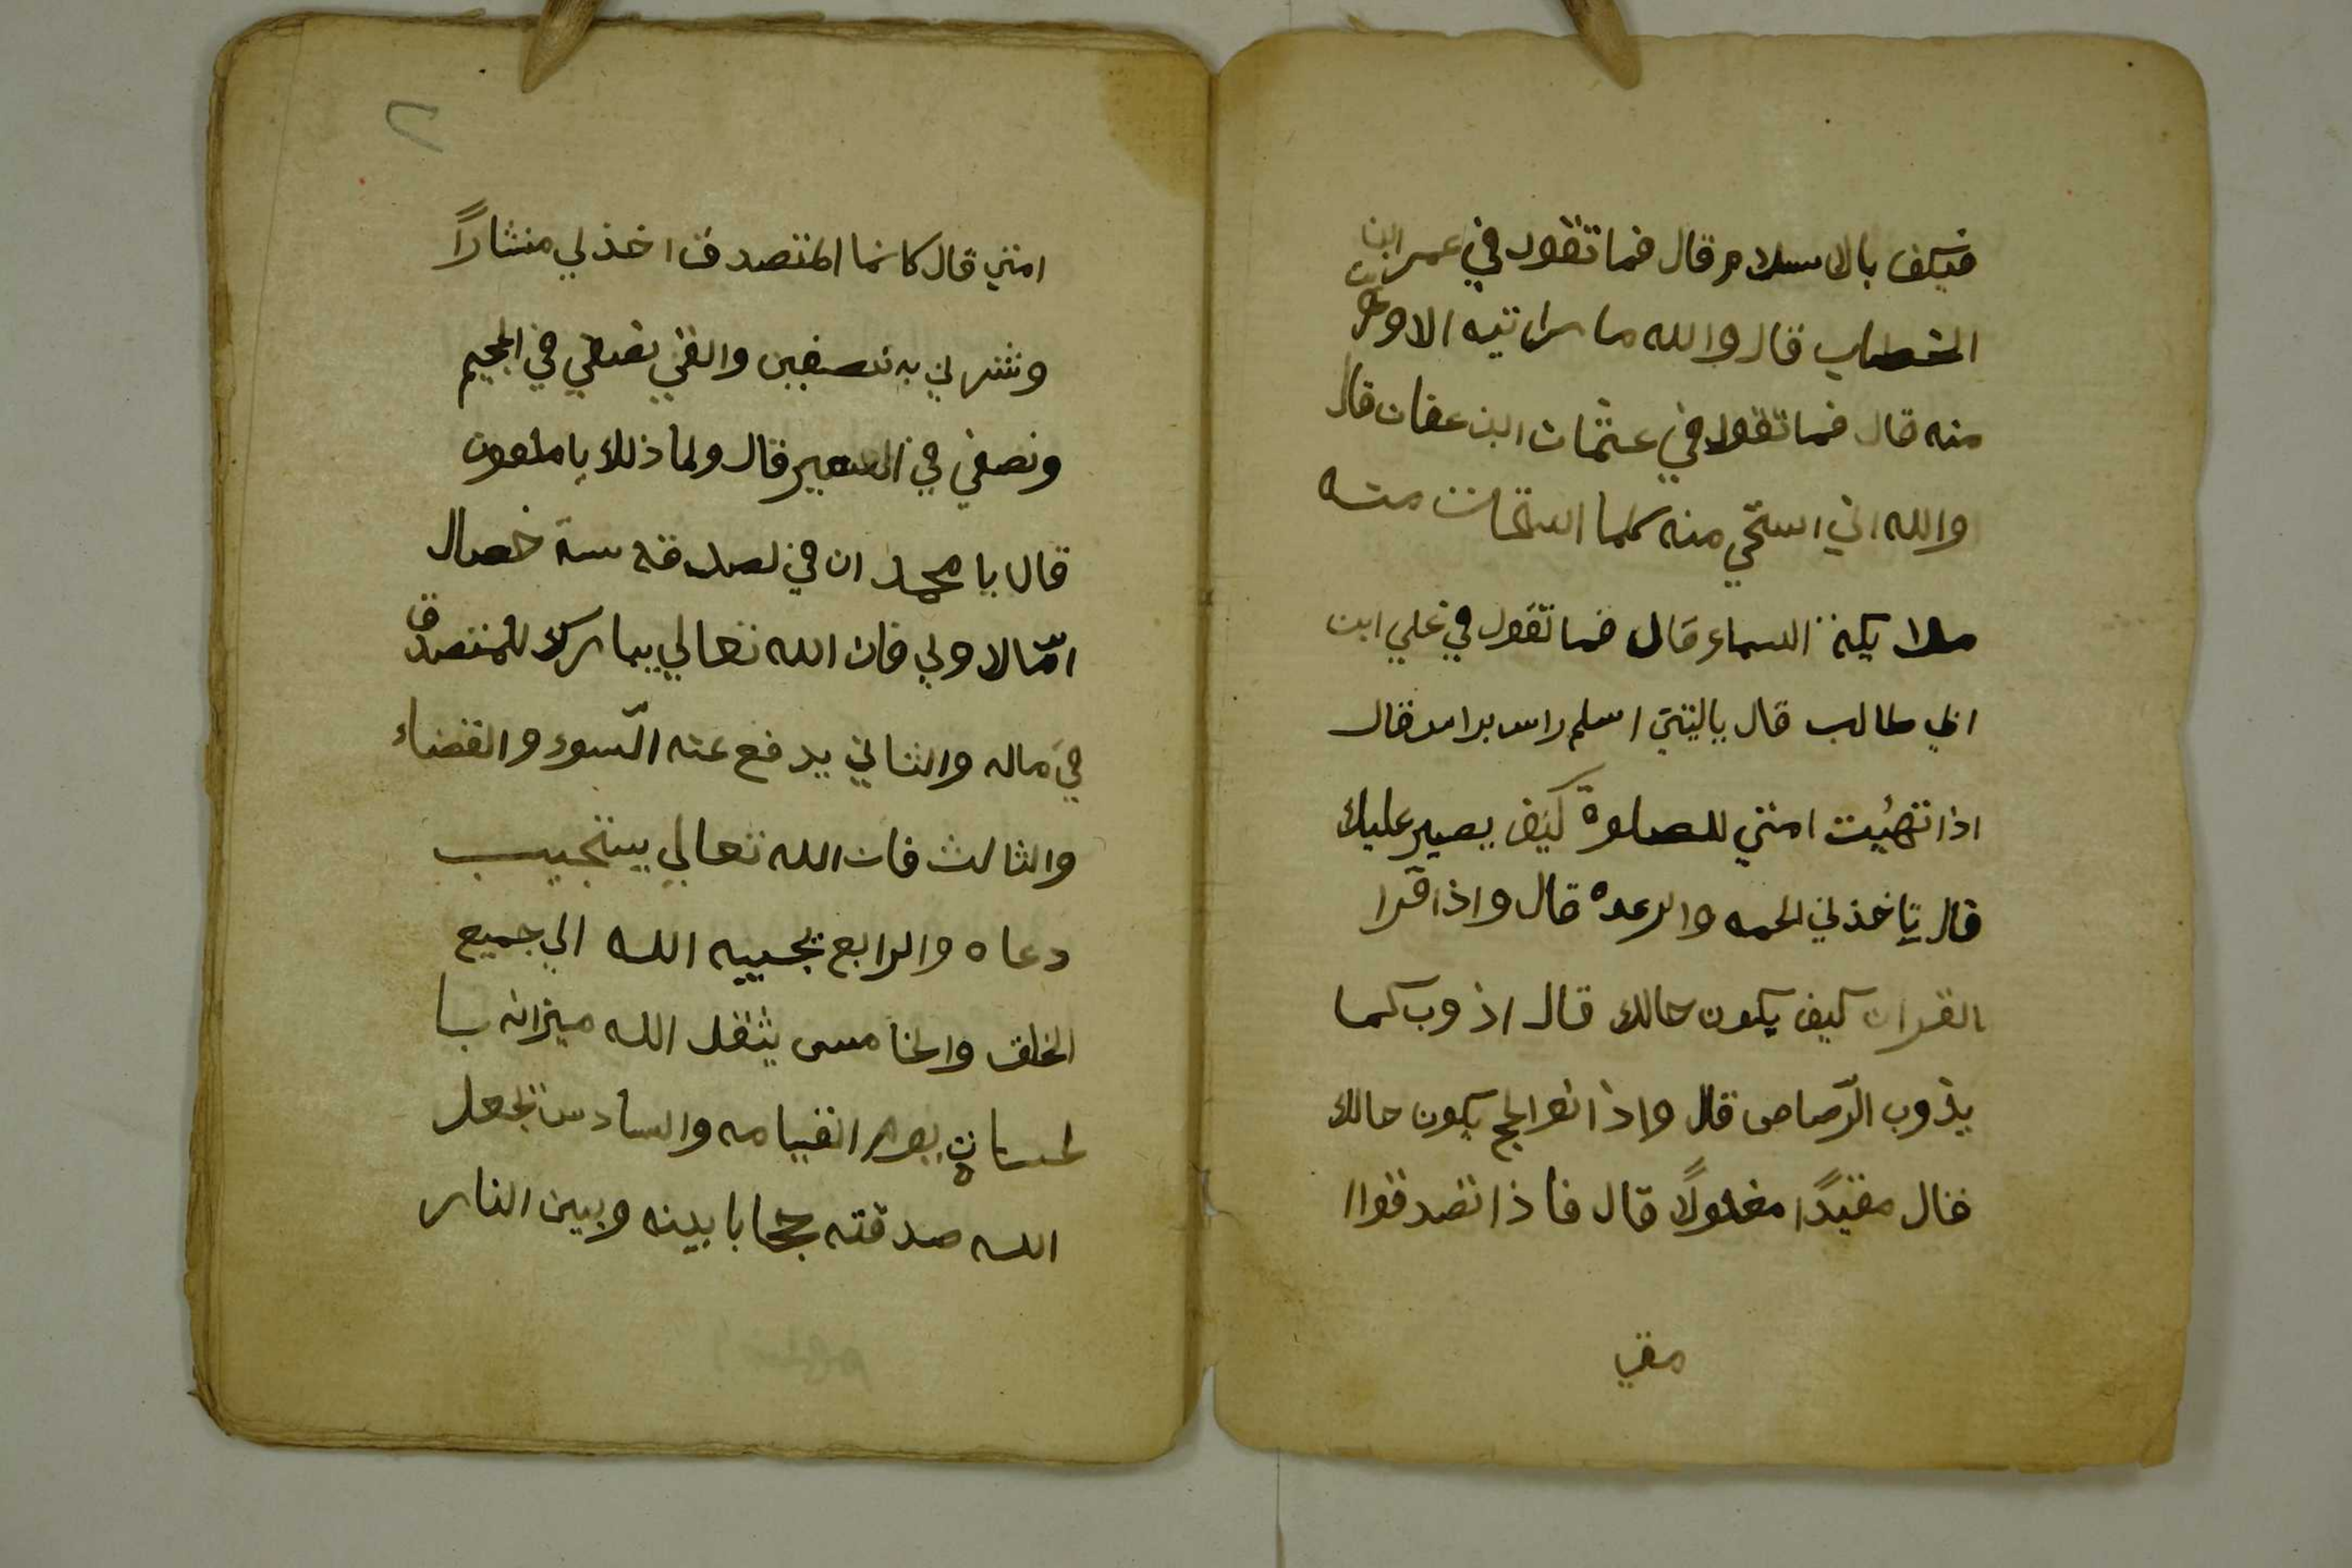 فيكف بالاسلام قال فما تقول في عمر ابن
الخطاب قال والله ما راتيه الا وهربت
منه قال فما تقول في عثمان ابن عفان قال
والله اني استحي منه كلما استحات منه
ملايكة السماء قال فما تقول في علي ابن
ابي طالب قال ياليتني اسلم راس براس قال
اذا تهيئت امتي للصلوة كيف يصير عليك
قال تاخذني الحمه والرعده قال واذا قرا
القران كيف يكون حالك قال اذوب كما
يذوب الرّصاص قال واذا نفر الحج يكون حالك
فقال مقيدًا مغلولًا قال فاذا تصدقوا
متي
٢
امتي قال كانما المتصدق اخذ لي منشارًا
ونشرني به نصفين والقي نصفي في الجحيم
ونصفي في السعير قال ولما ذلك يا ملعون
قال يا محمد ان في لصدقه ستة خصال
امّا الاولي فان الله تعالي يبارك للمتصدق
في ماله والثاني يدفع عنه السّوء والقضاء
والثالث فان الله تعالي يستجيب
دعاه والرابع يحببه الله الي جميع
الخلق والخامس يثقل الله ميزانه با
لحسنات يوم القيامه والسادس يجعل
الله صدقته حجابا بينه وبين النار